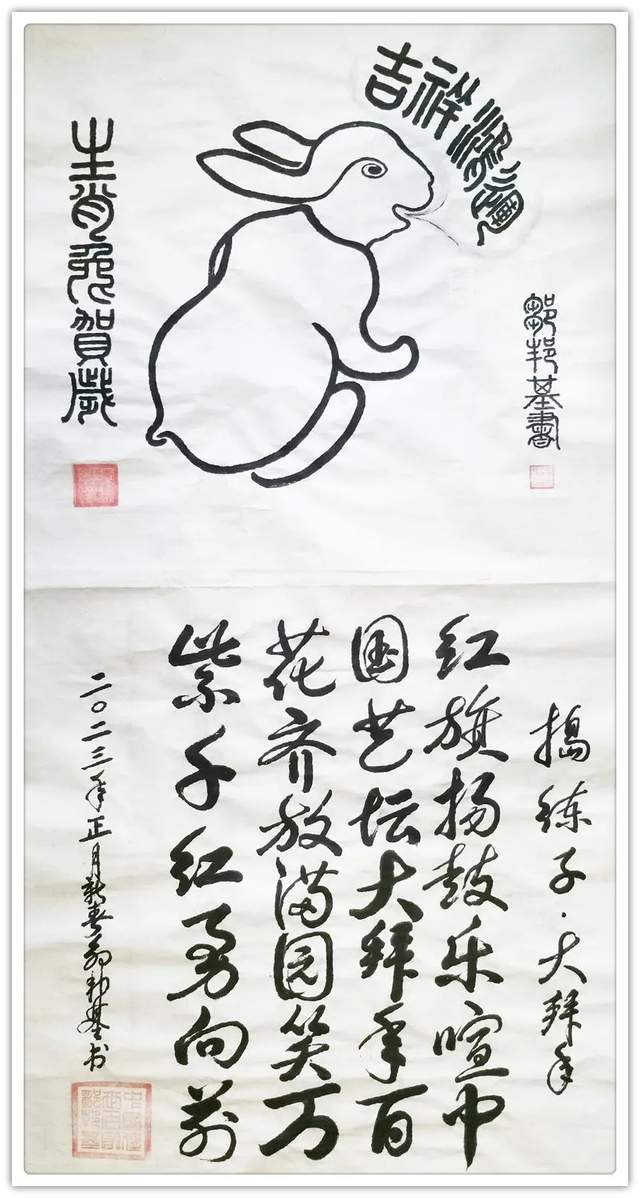 吉祥
生肖兔賀歲
鄒邦基書
捣练子·大拜年
红旗扬鼓乐喧中
国艺坛大拜年百
花齐放满园笑万
紫千红勇向前
二〇二三年正月新春邹邦基书